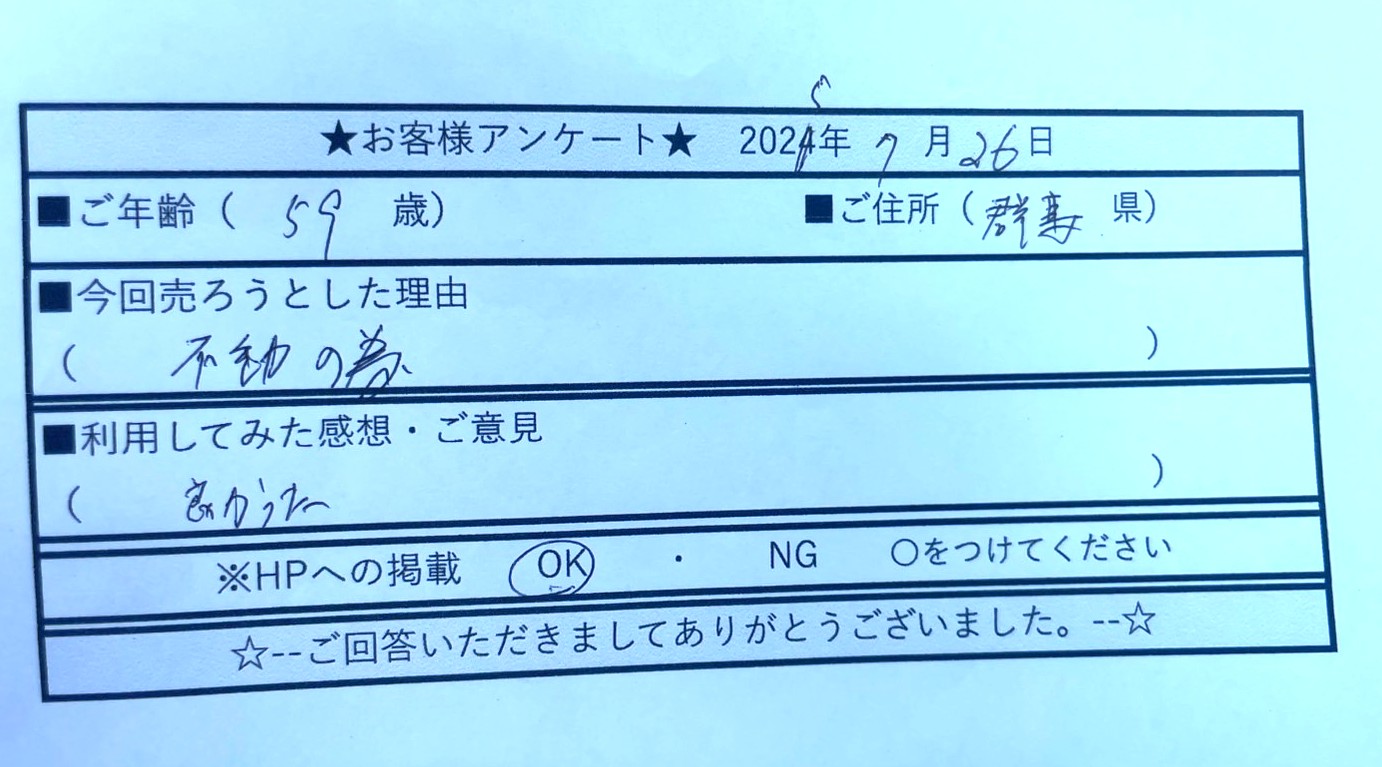 ★お客様アンケート★ 2025年 7月26日
■ご年齢( 59 歳) ■ご住所(群馬 県)
■今回売ろうとした理由
( 不動の為 )
■利用してみた感想・ご意見
( 良かった )
※HPへの掲載 OK ・ NG ○をつけてください
☆--ご回答いただきましてありがとうございました。--☆